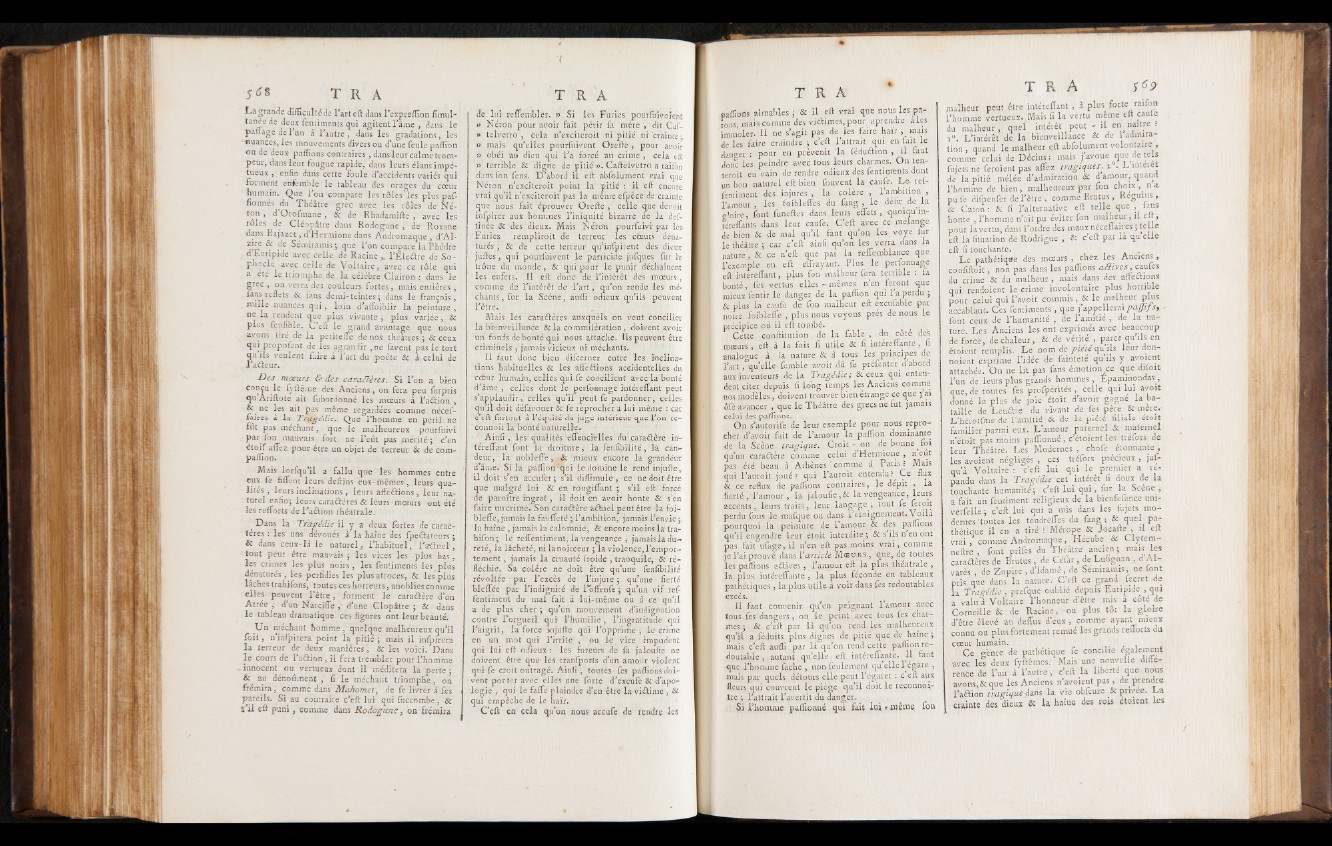 568 T R A
La grande difficulté de l'art eſt dans l'expreſſion ſimul-
tanée de deux ſentiments qui agitent l'âme, dans le
paſſage de l'un à l'autre, dans les gradations, les
nuances, les mouvements divers ou d'une ſeule paſſion
ou de deux paſſions contraires, dans leur calme trom-
peur, dans leur fougue rapide, dans leurs élans impé-
tueux, enfin dans cette foule d'accidents variés qui
forment enſemble le tableau des orages du cœur
humain. Que l'on compare les rôles les plus paſ-
ſionnés du Théâtre grec avec les rôles de Né-
ron, d'Oroſmane, & de Rhadamiſte, avec les
rôles de Cléopâtre dans Rodogune, de Roxane
dans Bajazet, d'Hermione dans Andromaque, d'Al-
zire & de Sémiramis; que l'on compare la Phèdre
d'Euripide avec celle de Racine, l'Électre de So-
phocle avec celle de Voltaire, avec ce rôle qui
a été le triomphe de la célèbre Clairon: dans le
grec, on verra des couleurs fortes, mais entières,
ſans reflets & ſans demi-teintes; dans le françois,
mille nuances qui, loin d'affoiblir la peinture,
ne la rendent que plus vivante, plus variée, &
plus ſenſible. C'eſt le grand avantage que nous
avons tiré de la petiteſſe de nos théâtres; & ceux
qui propoſent de les agrandir, ne ſavent pas le tort
qu'ils veulent faire à l'art du poète & à celui de
l'acteur.
Des mœurs & des caractères. Si l'on a bien
conçu le ſyſtême des Anciens, on ſera peu ſurpris
qu'Ariſtote ait ſubordonné les mœurs à l'action,
& ne les ait pas même regardées comme néceſ-
ſaires à la Tragédie. Que l'homme en péril ne
fût pas méchant, que le malheureux pourſuivi
par ſon mauvais ſort ne l'eût pas mérité; c'en
étoit aſſez pour être un objet de terreur & de com-
paſſion.
Mais lorſqu'il a fallu que les hommes entre
eux ſe fiſſent leurs deſtins eux-mêmes, leurs qua-
lités, leurs inclinations, leurs affections, leur na-
turel enfin; leurs caractères & leurs mœurs ont été
les reſſorts de l'action théâtrale.
Dans la Tragédie il y a deux ſortes de carac-
tères: les uns dévoués à la haîne des ſpectateurs;
& dans ceux-là le naturel, l'habituel, l'actuel,
tout peut être mauvais; les vices les plus bas,
les crimes les plus noirs, les ſentiments les plus
dénaturés, les perfidies les plus atroces, & les plus
lâches trahiſons, toutes ces horreurs, anoblies comme
elles peuvent l'être, forment le caractère d'un
Atrée, d'un Narciſſe, d'une Clopâtre; & dans
le tableau dramatique ces figures ont leur beauté.
Un méchant homme, quelque malheureux qu'il
ſoit, n'inſpirera point la pitié; mais il inſpirera
la terreur de deux manières, & les voici. Dans
le cours de l'action, il fera trembler pour l'homme
innocent ou vertueux dont il méditera la perte;
& au dénoûment, ſi le méchant triomphe, on
frémira, comme dans Mahomet, de ſe livrer à ſes
pareils. Si au contraire c'eſt lui qui ſuccombe, &
s'il eſt puni, comme dans Rodogune, on frémira
T R A
de lui reſſembler. » Si les Furies pourſuivoient
» Néron pour avoir fait périr ſa mère, dit Caſ-
» telvetro, cela n'exciteroit ni pitié ni crainte;
» mais qu'elles pourſuivent Oreſte, pour avoir
» obéi au dieu qui l'a forcé au crime, cela eſt
» terrible & digne de pitié ». Caſtelvetro a raiſon
dans ſon ſens. D'abord il eſt abſolument vrai que
Néron n'exciteroit point la pitié: il eſt encore
vrai qu'il n'exciteroit pas la même eſpèce de crainte
que nous fait éprouver Oreſte, celle que devoit
inſpirer aux hommes l'iniquité bizarre de la deſ-
tinée & des dieux. Mais Néron pourſuivi par les
Furies rempliroit de terreur les cœurs déna-
turés, & de cette terreur qu'inſpirent des dieux
juſtes, qui pourſuivent le parricide juſques ſur le
trône du monde, & qui pour le punir déchaînent
les enfers. Il eſt donc de l'intérêt des mœurs,
comme de l'intérêt de l'art, qu'on rende les mé-
chants, ſur la Scène, auſſi odieux qu'ils peuvent
l'être.
Mais les caractères auxquels on veut concilier
la bienveillance & la commiſération, doivent avoir
un fonds de bonté qui nous attache. Ils peuvent être
criminels, jamais vicieux ni méchants.
Il faut donc bien diſcerner entre les inclina-
tions habituelles & les affections accidentelles du
cœur humain, celles qui ſe concilient avec la bonté
d'âme, celles dont le perſonnage intéreſſant peut
s'applaudir, celles qu'il peut ſe pardonner, celles
qu'il doit déſavouer & ſe reprocher à lui même: car
c'eſt ſurtout à l'équité du juge intérieur que l'on re-
connoît la bonté naturelle.
Ainſi, les qualités eſſencielles du caractère in-
téreſſant ſont la droiture, la ſenſibilité, la can-
deur, la nobleſſe, & mieux encore la grandeur
d'âme. Si la paſſion qui le domine le rend injuſte,
il doit s'en accuſer; s'il diſſimule, ce ne doit être
que malgré lui & en rougiſſant; s'il eſt forcé
de paroître ingrat, il doit en avoir honte & s'en
faire un crime. Son caractère actuel peut être la foi-
bleſſe, jamais la fauſſeté; l'ambition, jamais l'envie;
la haîne, jamais la calomnie, & encore moins la tra-
hiſon; le reſſentiment, la vengeance, jamais la du-
reté, la lâcheté, ni la noirceur; la violence, l'empor-
tement, jamais la cruauté froide, tranquile, & ré-
fléchie. Sa colère ne doit être qu'une ſenſibilité
révoltée par l'excès de l'injure; qu'une fierté
bleſſée par l'indignité de l'offenſe; qu'un vif reſ-
ſentiment du mal fait à lui-même ou à ce qu'il
a de plus cher; qu'un mouvement d'indignation
contre l'orgueil qui l'humilie, l'ingratitude qui
l'aigrit, la force injuſte qui l'opprime, le crime
en un mot qui l'irrite, ou le vice impudent
qui lui eſt odieux: les fureurs de ſa jalouſie ne
doivent être que les tranſports d'un amour violent
qui ſe croit outragé. Ainſi, toutes ſes paſſions doi-
vent porter avec elles une ſorte d'excuſe & d'apo-
logie, qui le faſſe plaindre d'en être la victime, &
qui empêche de le haïr.
C'eſt en cela qu'on nous accuſe de rendre les
T R A
paſſions aimables; & il eſt vrai que nous les pa-
rons, mais comme des victimes, pour aprendre à les
immoler. Il ne s'agit pas de les faire haïr, mais
de les faire craindre; c'eſt l'attrait qui en fait le
danger: pour en prévenir la ſéduction, il faut
donc les peindre avec tous leurs charmes. On ten-
teroit en vain de rendre odieux des ſentiments dont
un bon naturel eſt bien ſouvent la cauſe. Le reſ-
ſentiment des injures, la colère, l'ambition,
l'amour, les foibleſſes du ſang, le déſir de la
gloire, ſont funeſtes dans leurs effets, quoiqu'in-
téreſſants dans leur cauſe. C'eſt avec ce mélange
de bien & de mal qu'il faut qu'on les voye ſur
le théâtre; car c'eſt ainſi qu'on les verra dans la
nature, & ce n'eſt que par la reſſemblance que
l'exemple en eſt effrayant. Plus le perſonnage
eſt intéreſſant, plus ſon malheur ſera terrible: ſa
bonté, ſes vertus elles-mêmes n'en feront que
mieux ſentir le danger de la paſſion qui l'a perdu;
& plus la cauſe de ſon malheur eſt excuſable par
notre foibleſſe, plus nous voyons près de nous le
précipice où il eſt tombé.
Cette conſtitution de la fable, du côté des
mœurs, eſt à la fois ſi utile & ſi intéreſſante, ſi
analogue à la nature & à tous les principes de
l'art, qu'elle ſemble avoir dû ſe préſenter d'abord
aux inventeurs de la Tragédie; & ceux qui enten-
dent citer depuis ſi long temps les Anciens comme
nos modèles, doivent trouver bien étrange ce que j'ai
oſé avancer, que le Théâtre des grecs ne fut jamais
celui des paſſions.
On s'autoriſe de leur exemple pour nous repro-
cher d'avoir fait de l'amour la paſſion dominante
de la Scène tragique. Croit-on de bonne foi
qu'un caractère comme celui d'Hermione, n'eût
pas été beau à Athènes comme à Paris? Mais
qui l'auroit joué? qui l'auroit entendu? Ce flux
& ce reflux de paſſions contraires, le dépit, la
fierté, l'amour, la jalouſie, & la vengeance, leurs
accents, leurs traits, leur langage, tout ſe ſeroit
perdu ſous le maſque ou dans l'éloignement. Voilà
pourquoi la peinture de l'amour & des paſſions
qu'il engendre leur étoit interdite; & s'ils n'en ont
pas fait uſage, il n'en eſt pas moins vrai, comme
je l'ai prouvé dans l'article MŒURS, que, de toutes
les paſſions actives, l'amour eſt la plus théatrale,
la plus intéreſſante, la plus féconde en tableaux
pathétiques, la plus utile à voir dans ſes redoutables
excès.
Il faut convenir qu'en peignant l'amour avec
tous ſes dangers, on le peint avec tous ſes char-
mes; & c'eſt par là qu'on rend les malheureux
qu'il a ſéduits plus dignes de pitié que de haîne;
mais c'eſt auſſi par là qu'on rend cette paſſion re-
doutable, autant qu'elle eſt intéreſſante. Il faut
que l'homme ſache, non ſeulement qu'elle l'égare,
mais par quels détours elle peut l'égarer: c'eſt aux
fleurs qui couvrent le piège qu'il doit le reconnoî-
tre; l'attrait l'avertit du danger.
Si l'homme paſſionné qui fait lui-même ſon
T R A 569
malheur peut être intéreſſant, à plus forte raiſon
l'homme vertueux. Mais ſi la vertu même eſt cauſe
du malheur, quel intérêt peut-il en naître?
1°. L'intérêt de la bienveillance & de l'admira-
tion, quand le malheur eſt abſolument volontaire,
comme celui de Décius: mais j'avoue que de tels
ſujets ne ſeroient pas aſſez tragiques. 2°. L'intérêt
de la pitié mêlée d'admiration & d'amour, quand
l'homme de bien, malheureux par ſon choix, n'a
pu ſe diſpenſer de l'être, comme Brutus, Régulus,
& Caton: & ſi l'alternative eſt telle que, ſans
honte, l'homme n'ait pu éviter ſon malheur, il eſt,
pour la vertu, dans l'ordre des maux néceſſaires; telle
eſt la ſituation de Rodrigue, & c'eſt par là qu'elle
eſt ſi touchante.
Le pathétique des mœurs, chez les Anciens,
conſiſtoit, non pas dans les paſſions actives, cauſes
du crime & du malheur, mais dans des affections
qui rendoient le crime involontaire plus horrible
pour celui qui l'avoit commis, & le malheur plus
accablant. Ces ſentiments, que j'appellerai paſſifs,
ſont ceux de l'humanité, de l'amitié, de la na-
ture. Les Anciens les ont exprimés avec beaucoup
de force, de chaleur, & de vérité, parce qu'ils en
étoient remplis. Le nom de piété qu'ils leur don-
noient exprime l'idée de ſainteté qu'ils y avoient
attachée. On ne lit pas ſans émotion ce que diſoit
l'un de leurs plus grands hommes, Épaminondas,
que, de toutes ſes proſpérités, celle qui lui avoit
donné le plus de joie étoit d'avoir gagné la ba-
taille de Leuctre du vivant de ſes père & mère.
L'héroïſme de l'amitié & de la piété filiale étoit
familier parmi eux. L'amour paternel & maternel
n'étoit pas moins paſſionné, c'étoient les tréſors de
leur Théâtre. Les Modernes, choſe étonnante,
les avoient négligés, ces tréſors précieux, juſ-
qu'à Voltaire: c'eſt lui qui le premier a ré-
pandu dans la Tragédie cet intérêt ſi doux de la
touchante humanité; c'eſt lui qui, ſur la Scène,
a fait un ſentiment religieux de la bienfeſance uni-
verſelle; c'eſt lui qui a mis dans les ſujets mo-
dernes toutes les tendreſſes du ſang; & quel pa-
thétique il en a tiré! Mérope & Jocaſte, il eſt
vrai, comme Andromaque, Hécube & Clytem-
neſtre, ſont priſes du Théâtre ancien; mais les
caractères de Brutus, de Céſar, de Luſignan, d'Al-
varès, de Zopire, d'Idamé, de Sémiramis, ne ſont
pris que dans la nature. C'eſt ce grand ſecret de
la Tragédie, preſque oublié depuis Euripide, qui
a valu à Voltaire l'honneur d'être mis à côté de
Corneille & de Racine, ou plus tôt la gloire
d'être élevé au deſſus d'eux, comme ayant mieux
connu ou plus fortement remué les grands reſſorts du
cœur humain.
Ce genre de pathétique ſe concilie également
avec les deux ſyſtêmes. Mais une nouvelle diffé-
rence de l'un à l'autre, c'eſt la liberté que nous
avons, & que les Anciens n'avoient pas, de prendre
l'action tragique dans la vie obſcure & privée. La
crainte des dieux & la haîne des rois étoient les